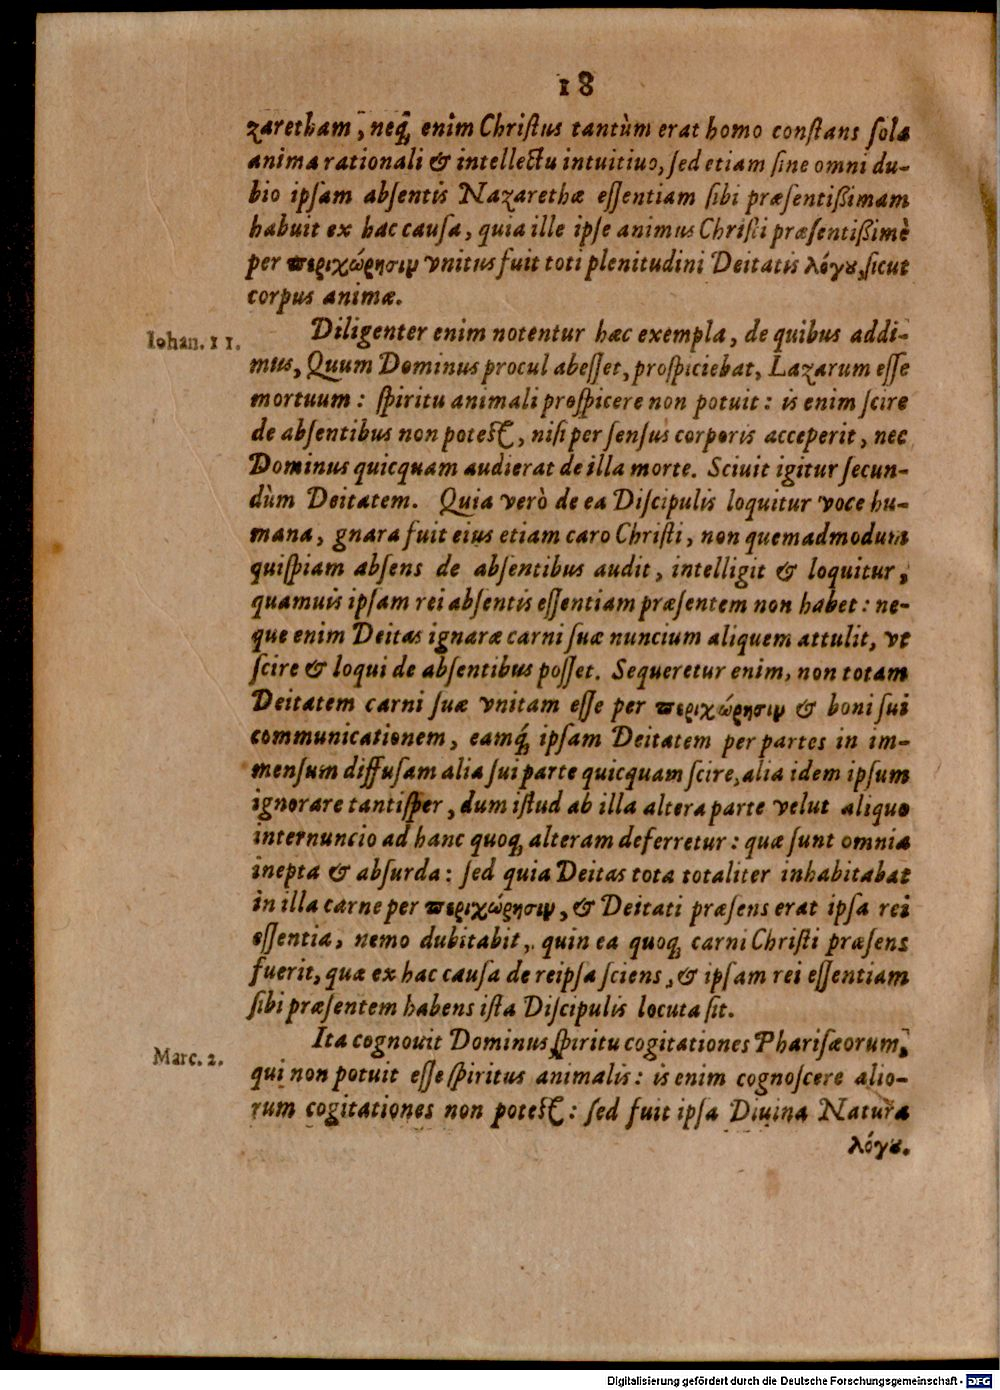 18
zaretham, neq́; enim Chriſtus tantùm erat homo conſtans ſola
anima rationali & intellectu intuitiuo, ſed etiam ſine omni du-
bio ipſam abſentis Nazarethæ eſſentiam ſibi præſentißimam
habuit ex hac cauſa, quia ille ipſe animus Chriſti præſentißimè
per περιχώρησιν vnitus fuit toti plenitudini Deitatis λόγȣ, ſicut
corpus animæ.
Iohan. 11.
Diligenter enim notentur hæc exempla, de quibus addi-
mus, Quum Dominus procul abeſſet, proſpiciebat, Lazarum eſſe
mortuum: ſpiritu animali proſpicere non potuit: is enim ſcire
de abſentibus non poteſt, niſi per ſenſus corporis acceperit, nec
Dominus quicquam audierat de illa morte. Sciuit igitur ſecun-
dùm Deitatem. Quia verò de ea Diſcipulis loquitur voce hu-
mana, gnara fuit eius etiam caro Chriſti, non quemadmodum
quiſpiam abſens de abſentibus audit, intelligit & loquitur,
quamuis ipſam rei abſentis eſſentiam præſentem non habet: ne-
que enim Deitas ignaræ carni ſuæ nuncium aliquem attulit, vt
ſcire & loqui de abſentibus poſſet. Sequeretur enim, non totam
Deitatem carni ſuæ vnitam eſſe per περιχώρησιν & boni ſui
communicationem, eamq́; ipſam Deitatem per partes in im-
menſum diffuſam alia ſui parte quicquam ſcire, alia idem ipſum
ignorare tantiſper, dum iſtud ab illa altera parte velut aliquo
internuncio ad hanc quoq; alteram deferretur: quæ ſunt omnia
inepta & abſurda: ſed quia Deitas tota totaliter inhabitabat
in illa carne per περιχώρησιν, & Deitati præſens erat ipſa rei
eſſentia, nemo dubitabit, quin ea quoq; carni Chriſti præſens
fuerit, quæ ex hac cauſa de reipſa ſciens, & ipſam rei eſſentiam
ſibi præſentem habens iſta Diſcipulis locuta ſit.
Marc. 2.
Ita cognouit Dominus ſpiritu cogitationes Phariſæorum,
qui non potuit eſſe ſpiritus animalis: is enim cognoſcere alio-
rum cogitationes non poteſt: ſed fuit ipſa Diuina Natura
λόγȣ.
Digitalisierung gefördert durch die Deutsche Forschungsgemeinschaft - DFG